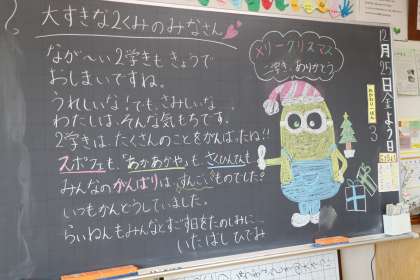 大すきな2くみのみなさん
なが〜い2学きも きょうで
おしまいですね。
うれしいな！でも、さみしいな
わたしは、そんな気もちです。
2学きは、たくさんのことをがんばったね!!
スポフェも、あかあかやも、さくひんてんも
みんなのがんばりは、すんごいものでした?
いつもかんどうしていました。
らいねんもみんなとすごす日をたのしみに
いたはし ひでみ
メリークリスマス
二学き、ありがとう
12月25日金よう日
3